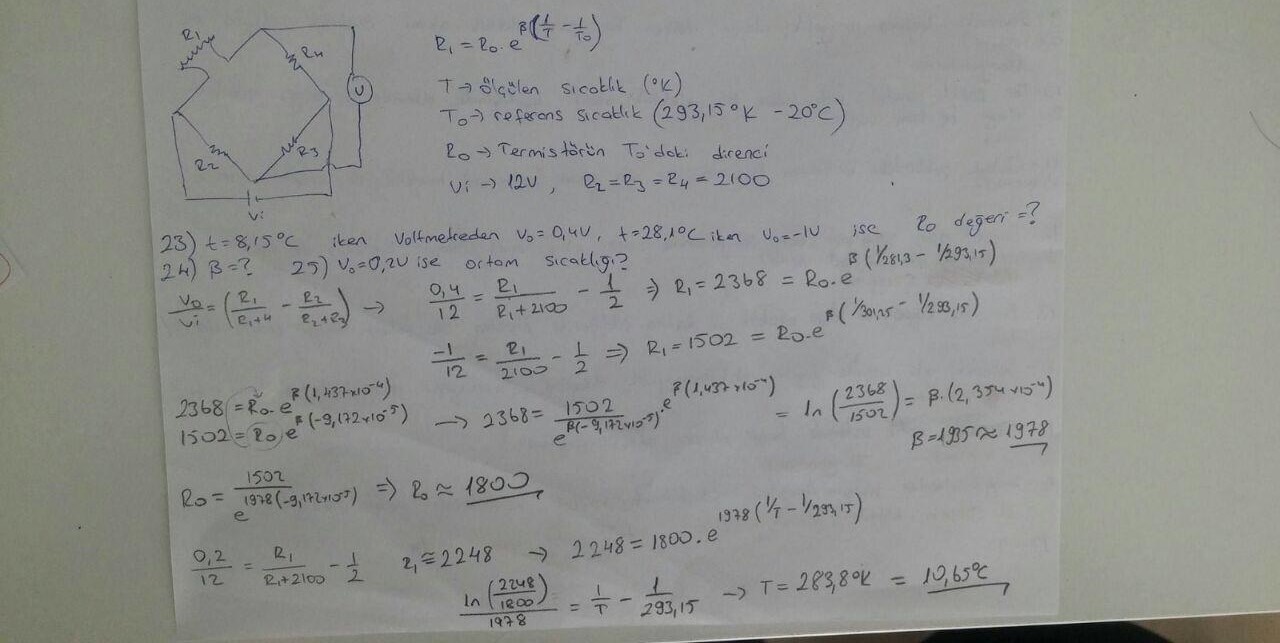 R1 R4 R2 R3 U Vi
R1 = R0 . e^β(1/T - 1/T0)
T → ölçülen sıcaklık (°K)
T0 → referans sıcaklık (293,15°K - 20°C)
R0 → Termistörün T0'daki direnci
Vi → 12V , R2 = R3 = R4 = 2100
23) t = 8,15°C iken Voltmetreden V0 = 0,4V, t = 28,1°C iken V0 = -1V ise R0 değeri = ?
24) β = ? 25) V0 = 0,2V ise ortam sıcaklığı?
V0/Vi = (R1/R1+4 - R2/R2+R3) → 0,4/12 = R1/R1+2100 - 1/2 ⇒ R1 = 2368 = R0 . e^β(1/281,3 - 1/293,15)
-1/12 = R1/2100 - 1/2 ⇒ R1 = 1502 = R0 . e^β(1/301,25 - 1/293,15)
2368 = R0 . e^β(1,437x10^-4)
1502 = R0 e^β(-9,172x10^-5) → 2368 = 1502/e^β(-9,172x10^-5) . e^β(1,437x10^-4) = ln(2368/1502) = β.(2,354x10^-4)
β = 1935 ≈ 1978
R0 = 1502/e^1978(-9,172x10^-5) ⇒ R0 ≈ 1800
0,2/12 = R1/R1+2100 - 1/2 R1 ≅ 2248 → 2248 = 1800 . e^1978(1/T - 1/293,15)
ln(2248/1800)/1978 = 1/T - 1/293,15 → T = 283,8°K = 10,65°C